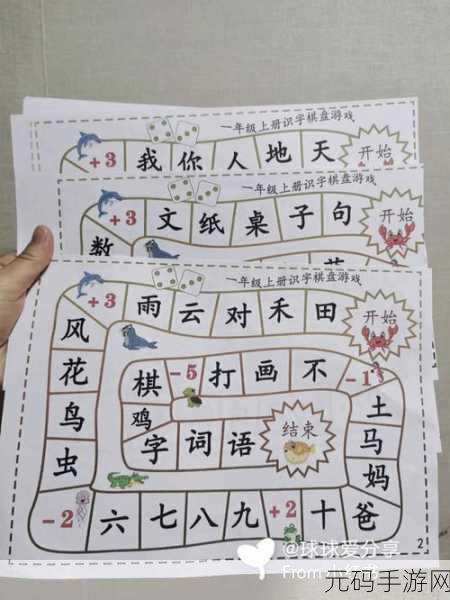 一年级上册识字棋盘游戏
+3 我 你 人 地 天 开始
一年级上册识字棋盘游戏
+3 文 纸 桌 子 句 开始
数
一年级上册识字棋盘游戏
+3 雨 云 对 禾 田 开始
风
花 棋 -5 打 画 不 -1
鸟 鸡 土
虫 字 词 语 结束 马
妈
-2 六 七 八 九 +2 十 爸
2
@球球爱分享
From 小红书
元码手游网